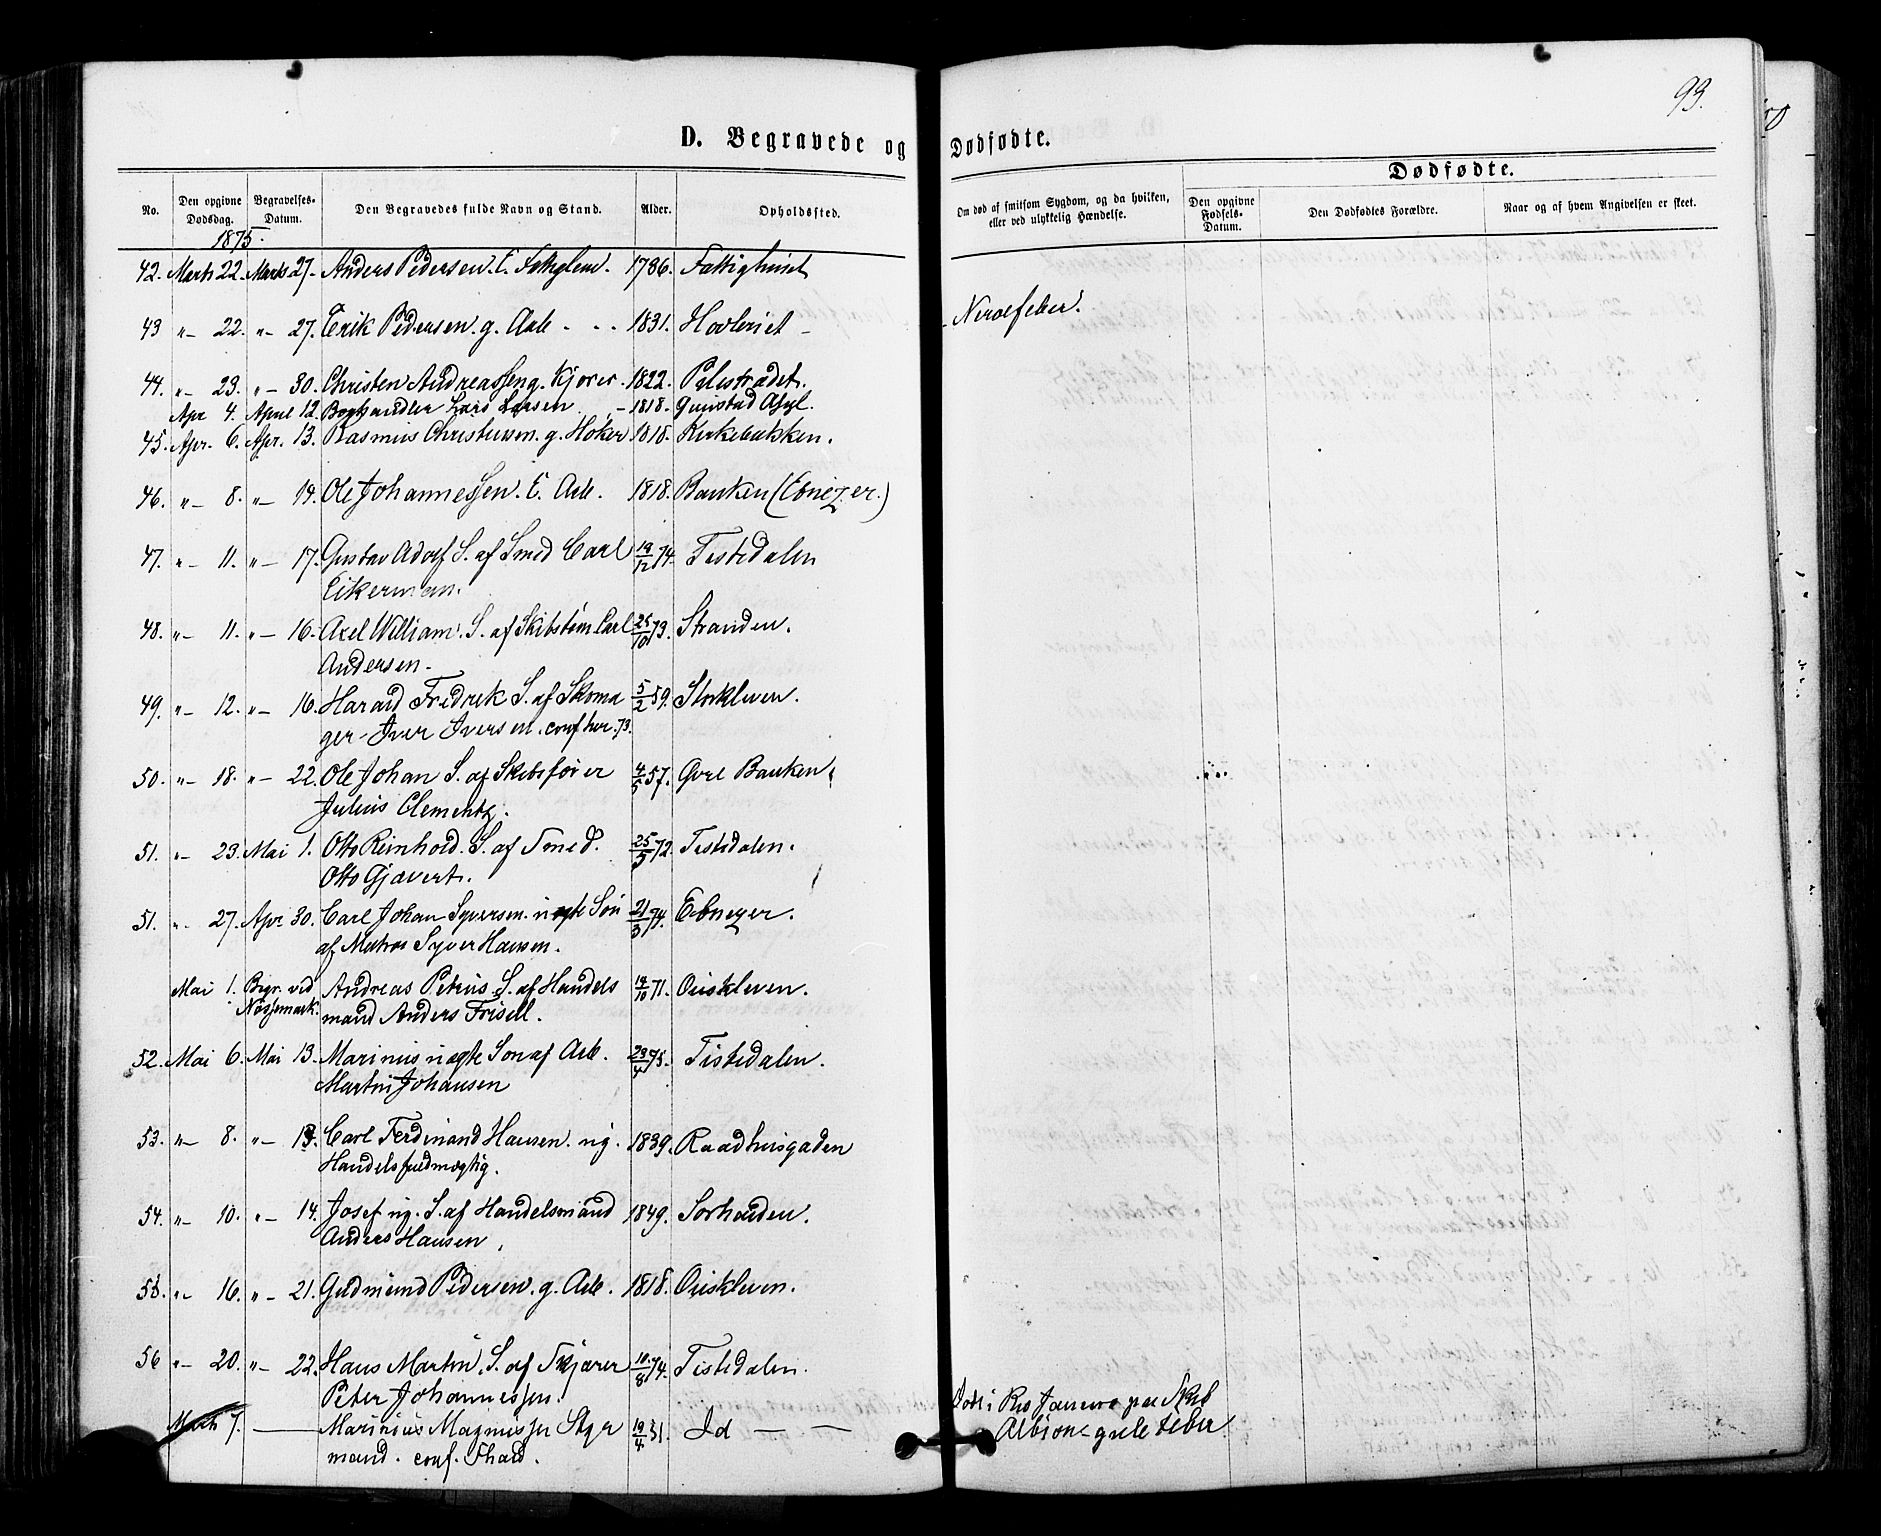 93.
D. Begravede og Dødfødte.
No. Den opgivne Dødsdag. Begravelses-Datum. Den Begravedes fulde Navn og Stand. Alder. Opholdssted. Om død af smitsom Sygdom, og da hvilken, eller ved ulykkelig Hændelse. Dødfødte. Den opgivne Fødsels-Datum. Den Dødfødtes Forældre. Naar og af hvem Angivelsen er skeet.
1875.
42. Marts 22. Marts 27. Anders Pedersen. E. Fattiglem. 1786. Fattighuset
43 "– 22. "– 27. Erik Pedersen. g. Arb. 1831. Hovleriet – Nervefeber.
44. "– 23. "– 30. Christen Andreassen g. Kjører. 1822. Pelestrædet.
Apr 4. April 12. Boghandler Lars Larsen – 1818. Gaustad Asyl.
45. Apr. 6. Apr. 13. Rasmus Christensen. g. Høker 1818. Kirkebakken.
46. "– 8. "– 14. Ole Johannessen. E. Arb. 1818. Banken (Ebnezer.)
47. "– 11. "– 17. Gustav Adolf S. af Smed Carl 19/12 74. Tistedalen
Eikerman.
48. "– 11. "– 16. Axel William. S. af Skibstøm. Carl 25/10 73. Stranden.
Andersen.
49. "– 12. "– 16. Harald Fredrik S. af Skoma 5/2 59. Storkleven.
ger Iver Iversen. conf her. 73.
50. "– 18. "– 22. Ole Johan S. af Skibsfører 4/5 57. Øvre Banken.
Julius Clementz.
51. "– 23. Mai 1. Otto Reinhold. S. af Smed. 25/5 72. Tistedalen.
Otto Gjævert.
51. "– 27. Apr 30. Carl Johan Syversen. uægte Søn 21/3 74. Ebnezer.
af Matros Syver Hansen.
Mai 1. Begr. ved Andreas Petrus. S. af Handels 19/10 71. Ouskleven.
Nøssemark. mand Anders Frisell.
52. Mai 6. Mai 13. Marinius uægte Søn af Arb. 23/4 75. Tistedalen.
Martin Johansen
53. "– 8. "– 13. Carl Ferdinand Hansen. ug. 1839. Raadhusgaden
Handelsfuldmægtig.
54. "– 10. "– 14. Josef ug. S. af Handelsmand 1849. Sørhauden.
Anders Hansen
55. "– 16. "– 21. Gudmund Pedersen. g. Arb. 1818. Ouskleven.
56 "– 20. "– 22. Hans Martin. S. af Skjærer 10/8 74. Tistedalen.
Peter Johannessen.
Marts 7. — Marinius Magnussen Styr 19/4 51. Id — — Død i Rio Janeiro paa Skib
mand. conf. Fhald. Albion – gule Feber